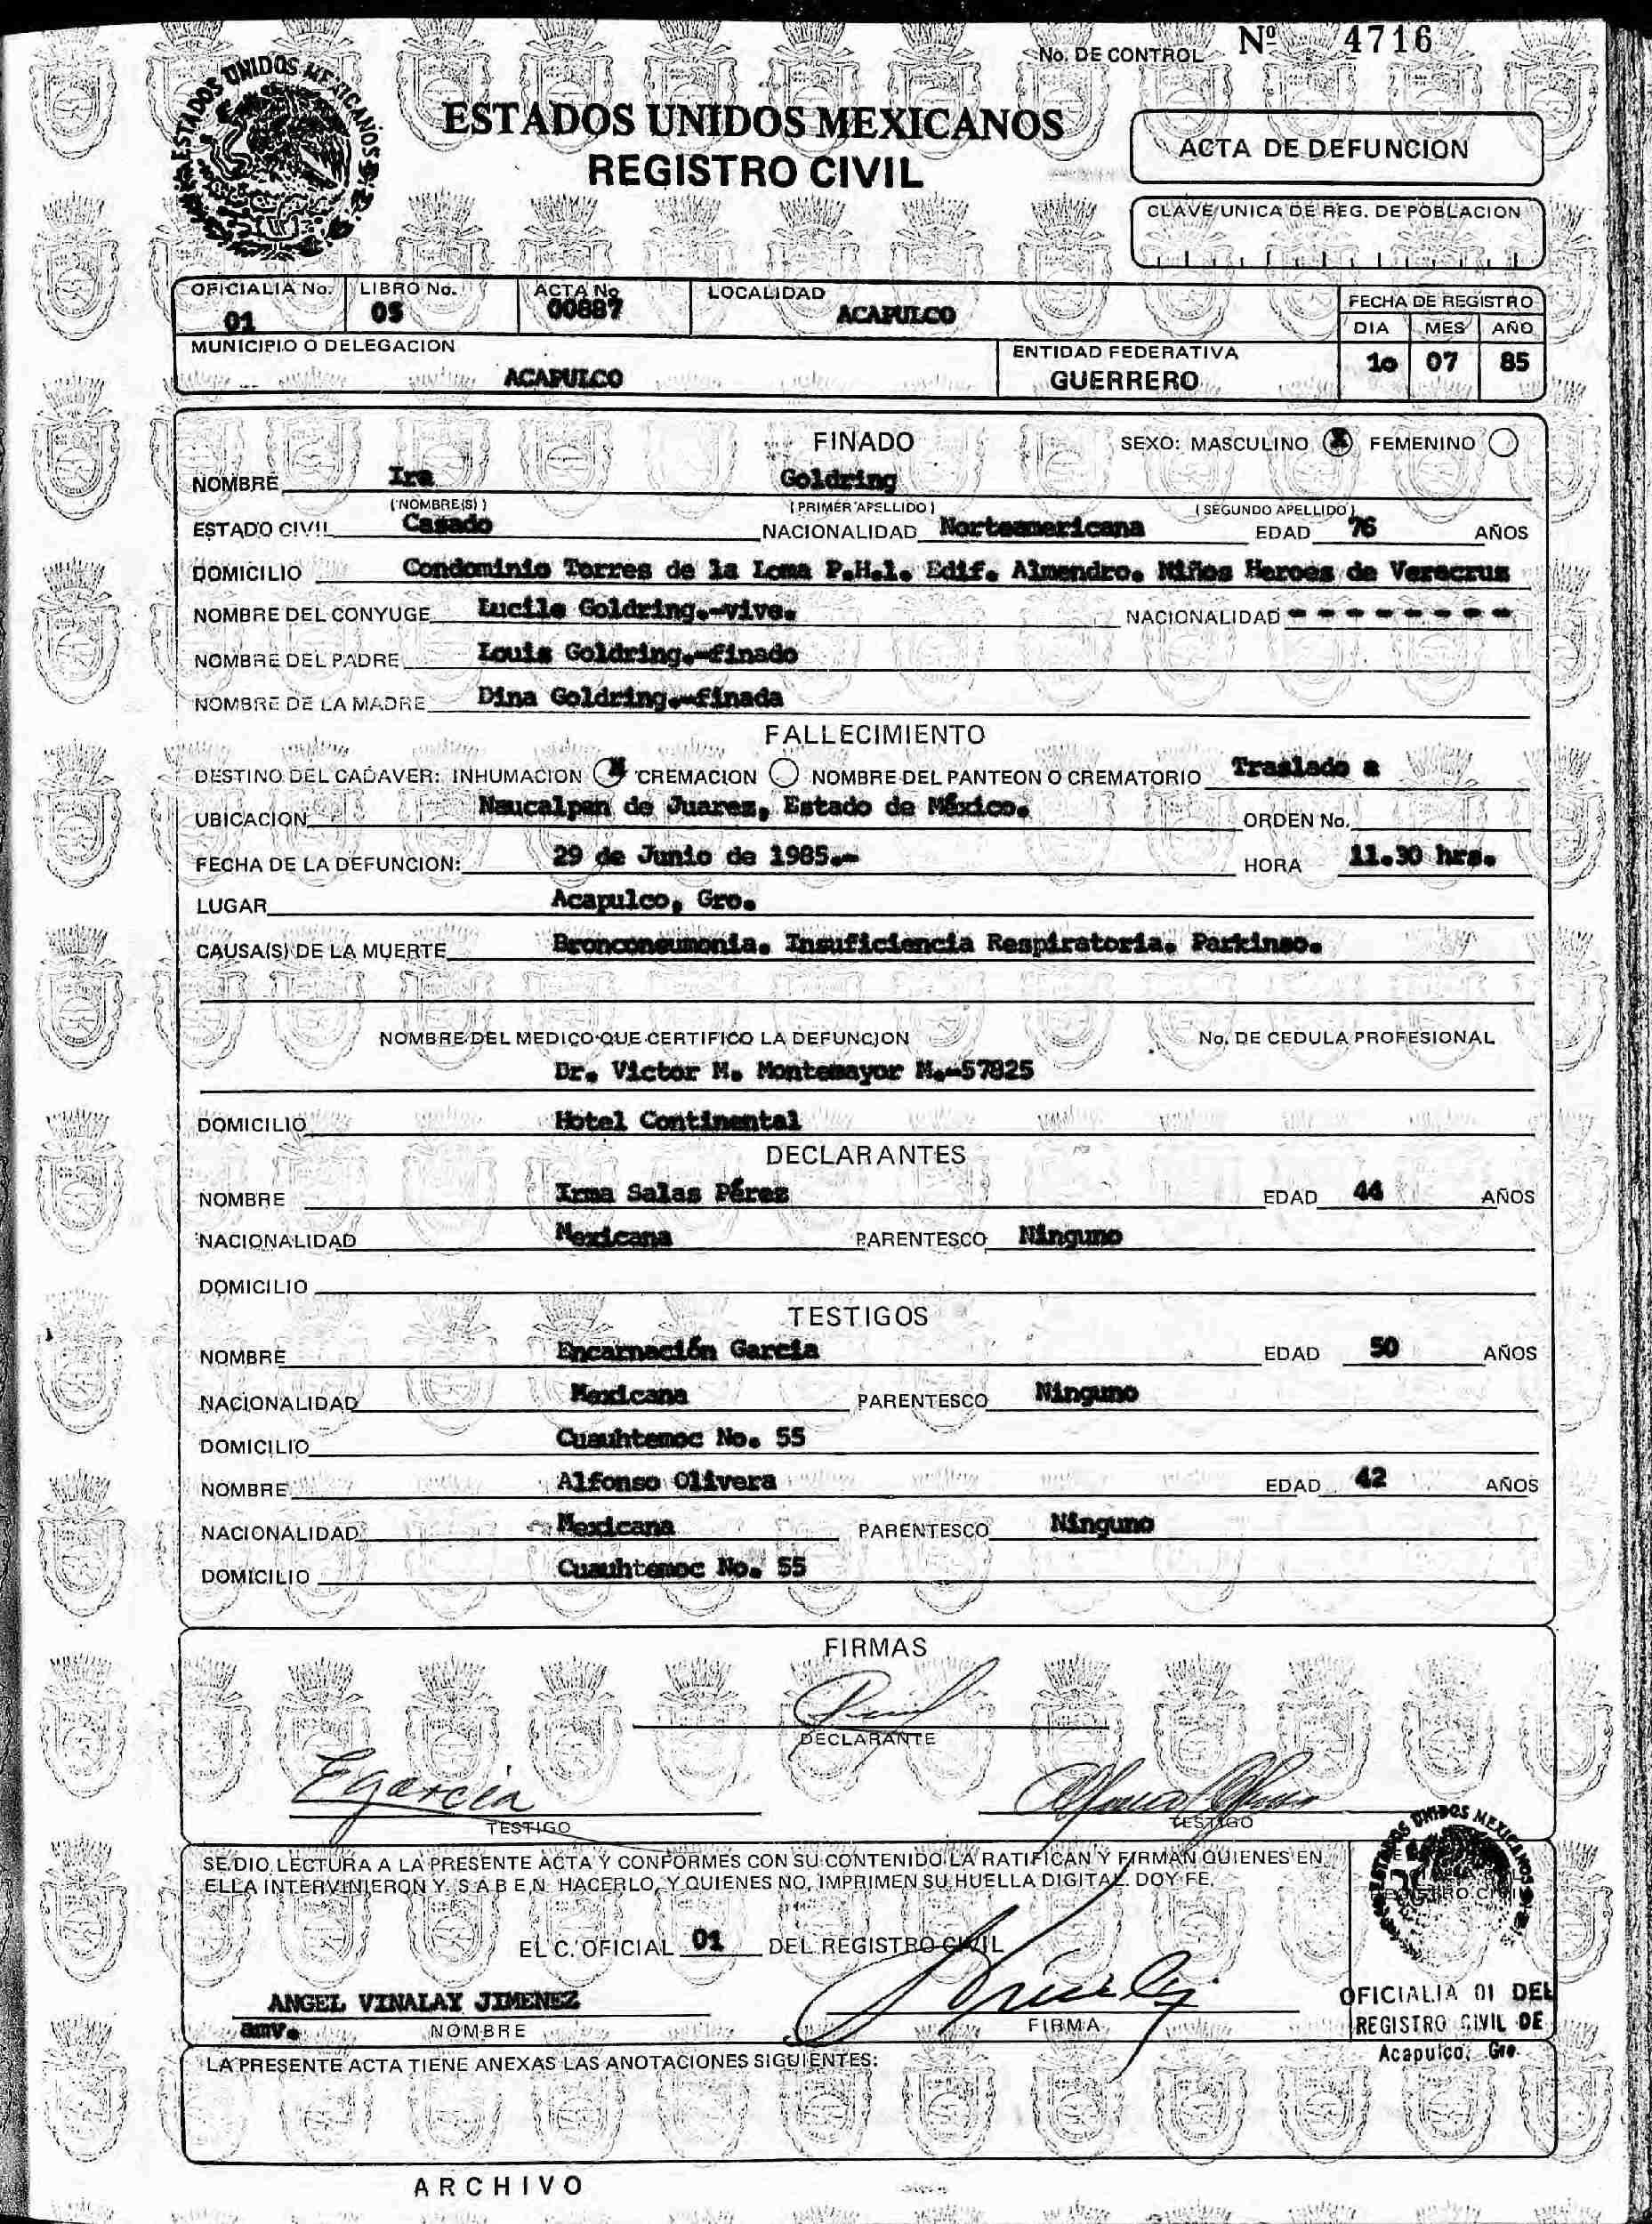 No. DE CONTROL Nº 4716
ESTADOS UNIDOS MEXICANOS
ESTADOS UNIDOS MEXICANOS
REGISTRO CIVIL
ACTA DE DEFUNCION
CLAVE UNICA DE REG. DE POBLACION
OFICIALIA No. LIBRO No. ACTA No LOCALIDAD FECHA DE REGISTRO
01 05 00887 ACAPULCO DIA MES AÑO
MUNICIPIO O DELEGACION ENTIDAD FEDERATIVA 10 07 85
ACAPULCO GUERRERO
FINADO SEXO: MASCULINO X FEMENINO
NOMBRE Ira Goldring
(NOMBRE(S)) (PRIMER APELLIDO) (SEGUNDO APELLIDO)
ESTADO CIVIL Casado NACIONALIDAD Norteamericana EDAD 76 AÑOS
DOMICILIO Condominio Torres de la Loma P.H.1. Edif. Almendro. Niños Heroes de Veracruz
NOMBRE DEL CONYUGE Lucile Goldring.-vive. NACIONALIDAD - - - - - - - -
NOMBRE DEL PADRE Louis Goldring.-finado
NOMBRE DE LA MADRE Dina Goldring.-finada
FALLECIMIENTO
DESTINO DEL CADAVER: INHUMACION X CREMACION NOMBRE DEL PANTEON O CREMATORIO Traslado a
UBICACION Naucalpan de Juarez, Estado de México. ORDEN No.
FECHA DE LA DEFUNCION: 29 de Junio de 1985.- HORA 11.30 hrs.
LUGAR Acapulco, Gro.
CAUSA(S) DE LA MUERTE Bronconeumonia. Insuficiencia Respiratoria. Parkinso.
NOMBRE DEL MEDICO QUE CERTIFICO LA DEFUNCION No. DE CEDULA PROFESIONAL
Dr. Victor M. Montemayor M.-57825
DOMICILIO Hotel Continental
DECLARANTES
NOMBRE Irma Salas Pérez EDAD 44 AÑOS
NACIONALIDAD Mexicana PARENTESCO Ninguno
DOMICILIO
TESTIGOS
NOMBRE Encarnación Garcia EDAD 50 AÑOS
NACIONALIDAD Mexicana PARENTESCO Ninguno
DOMICILIO Cuauhtemoc No. 55
NOMBRE Alfonso Olivera EDAD 42 AÑOS
NACIONALIDAD Mexicana PARENTESCO Ninguno
DOMICILIO Cuauhtemoc No. 55
FIRMAS
DECLARANTE
Egarcia
TESTIGO TESTIGO
SE DIO LECTURA A LA PRESENTE ACTA Y CONFORMES CON SU CONTENIDO LA RATIFICAN Y FIRMAN QUIENES EN
ELLA INTERVINIERON Y S A B E N HACERLO, Y QUIENES NO, IMPRIMEN SU HUELLA DIGITAL. DOY FE.
EL C. OFICIAL 01 DEL REGISTRO CIVIL
ANGEL VINALAY JIMENEZ
amv. NOMBRE FIRMA
OFICIALIA 01 DEL
REGISTRO CIVIL DE
Acapulco, Gro.
LA PRESENTE ACTA TIENE ANEXAS LAS ANOTACIONES SIGUIENTES:
ARCHIVO